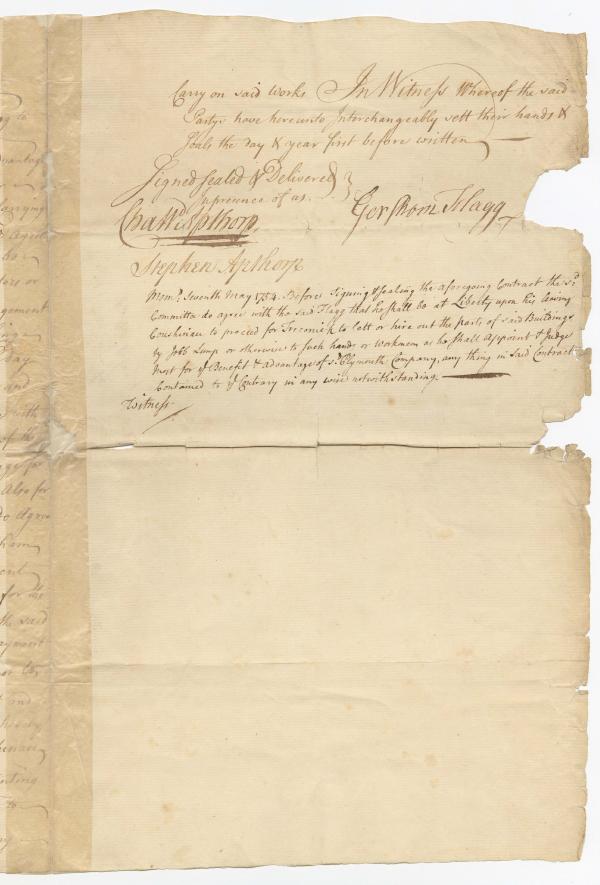 Carry on said Works In Witness Whereof the said
Partys have hereunto Interchangeably sett their hands &
Seals the day & year first before written
Signed Sealed & Delivered
in presence of us.
Gershom Flagg
Chas Wd Apthorp.
Stephen Apthorp
Memo. Seventh May 1754. Before Signing & Sealing the aforegoing Contract the sd
Committee do agree with the said Flagg that he shall be at Liberty upon his
to proceed for to lett or hire out the parts of said Buildings
by Jobb Lump or otherwise to such hands or Workmen as he shall Appoint & Judge
Most for ye Benefit & advantage of sd Plymouth Company, any thing in said Contract
Contained to ye Contrary in any wise notwithstanding.
Witness